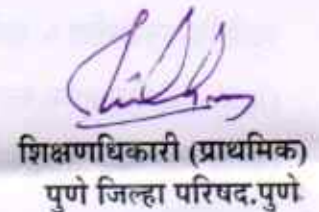 शिक्षणाधिकारी (प्राथमिक)
पुणे जिल्हा परिषद,पुणे.